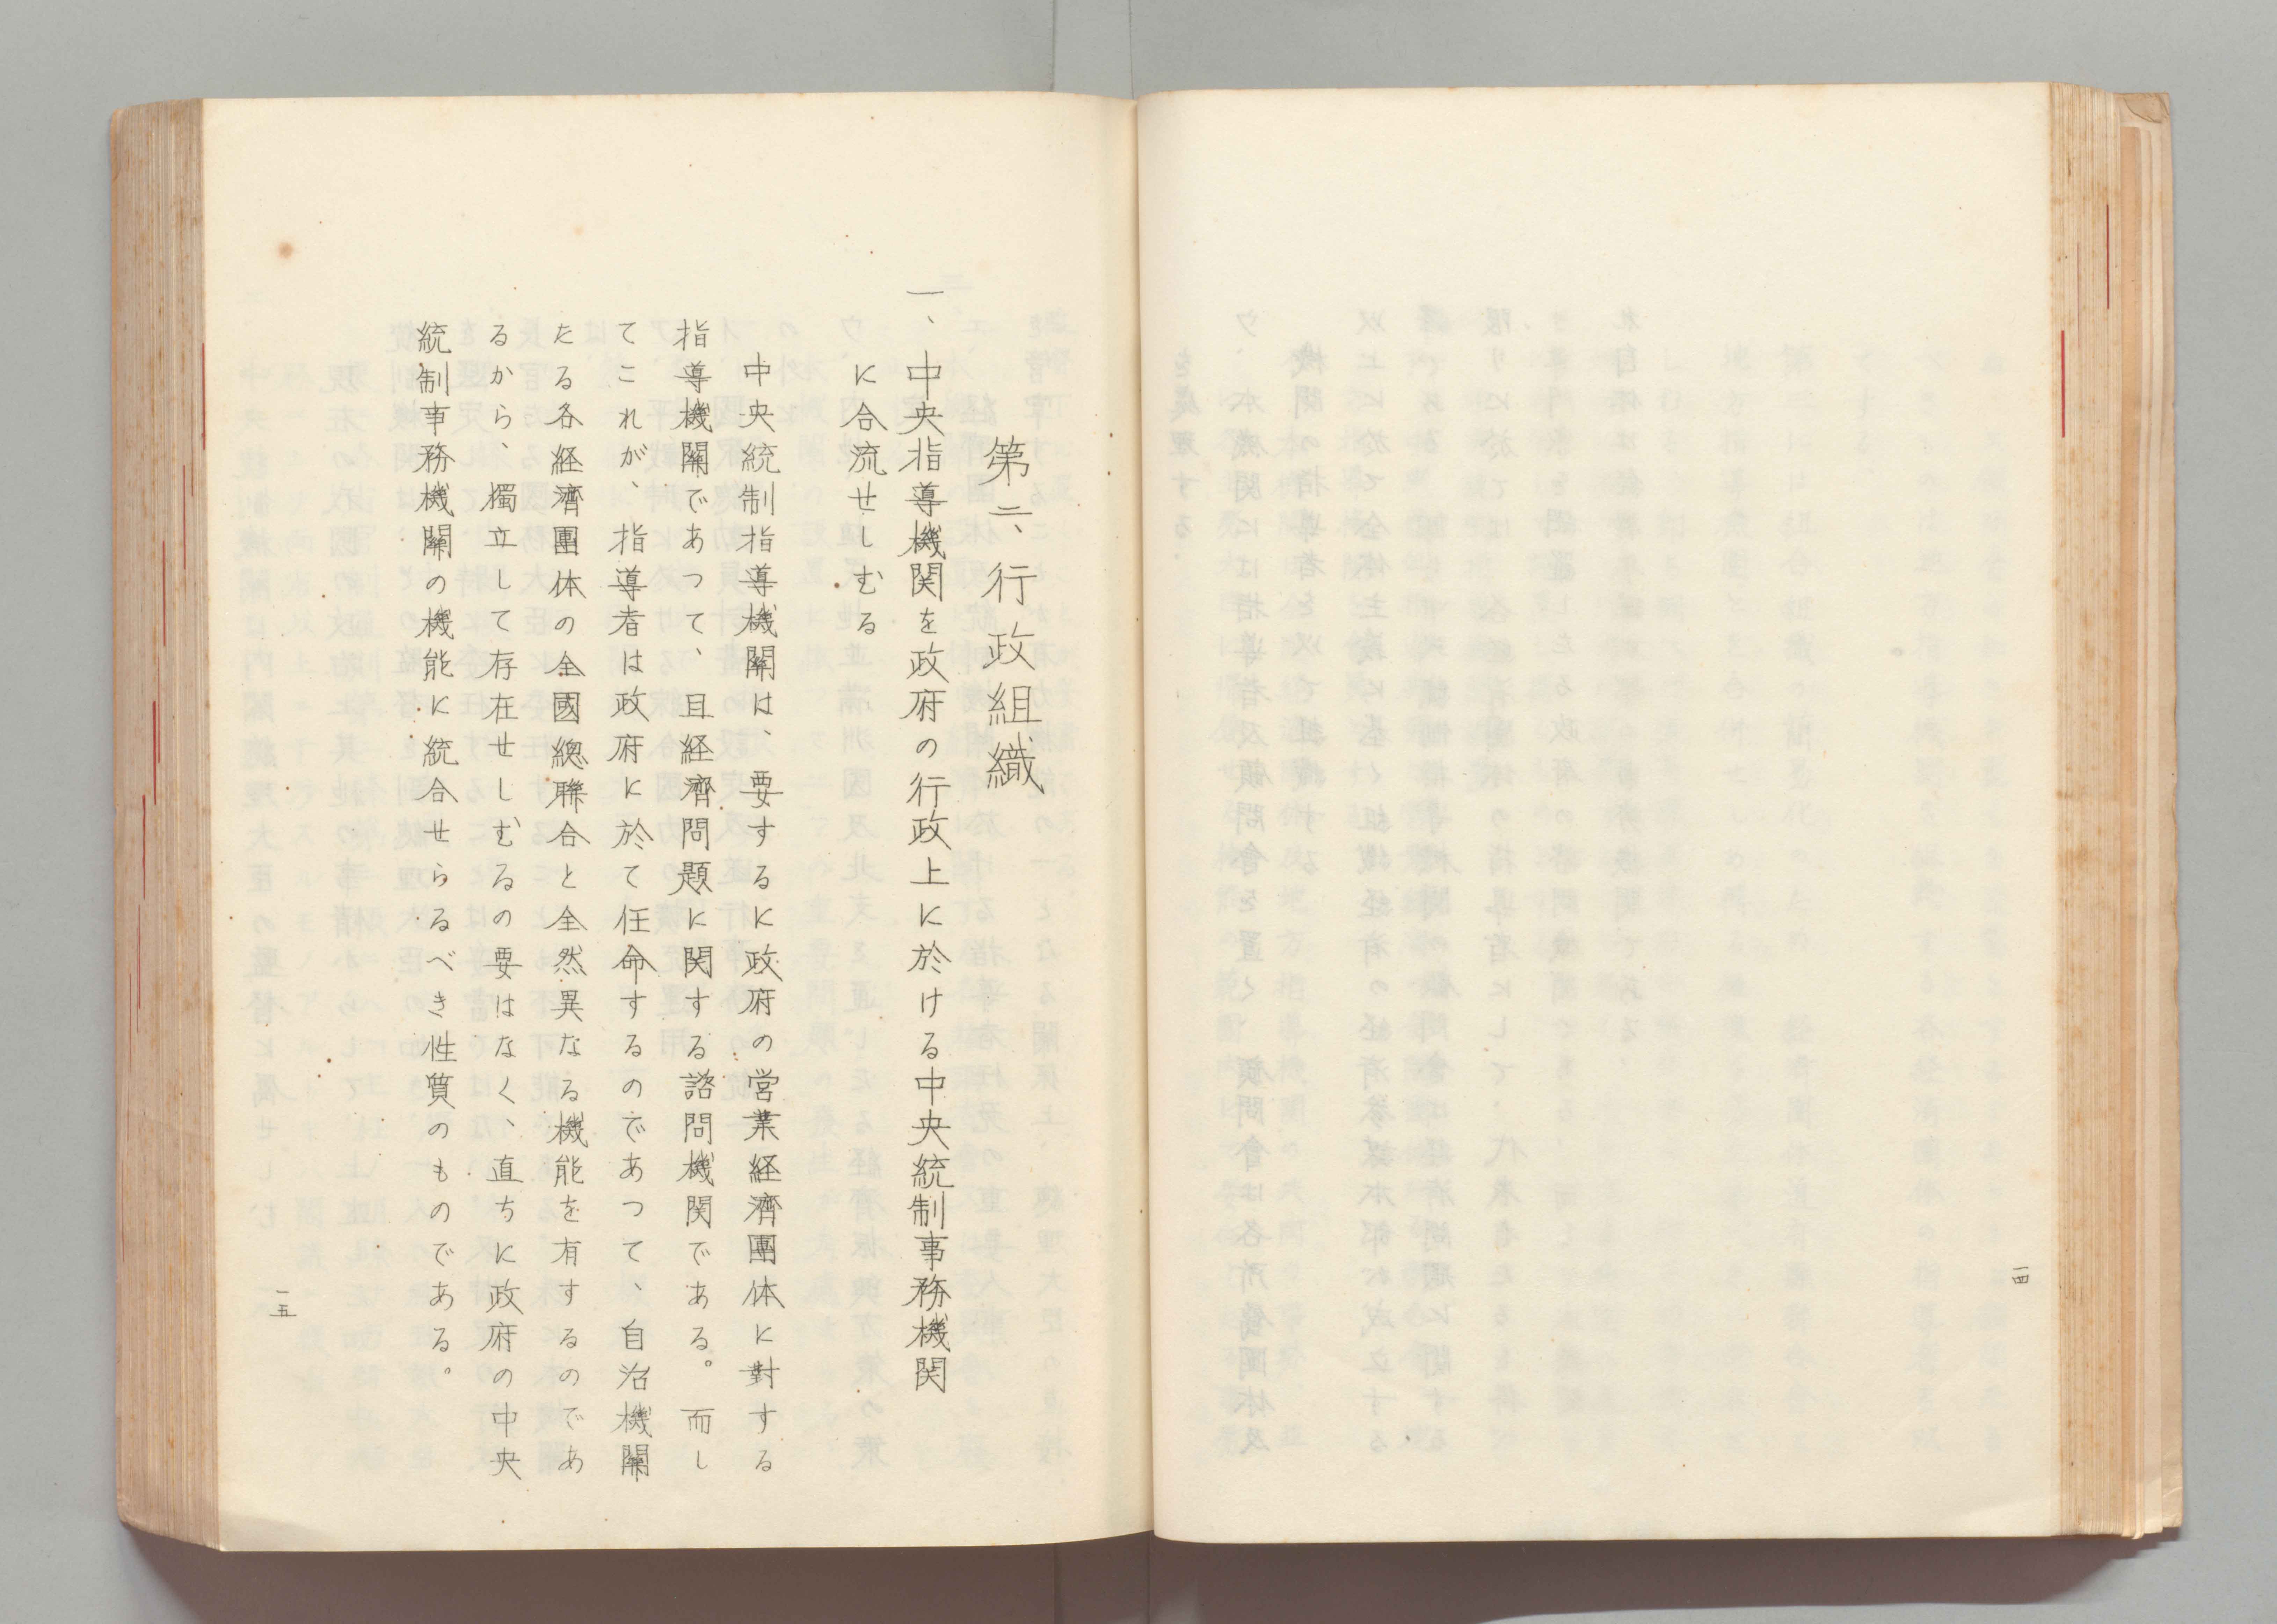 一四
第二、行政組織
一、中央指導機関を政府の行政上に於ける中央統制事務機関
に合流せしむる
中央統制指導機關は、要するに政府の営業経濟團体に對する
指導機關であつて、且経濟問題に関する諮問機関である。而し
てこれが、指導者は政府に於て任命するのであつて、自治機關
たる各経濟團体の全國總聯合と全然異なる機能を有するのであ
るから、獨立して存在せしむるの要はなく、直ちに政府の中央
統制事務機關の機能に統合せらるべき性質のものである。
一五